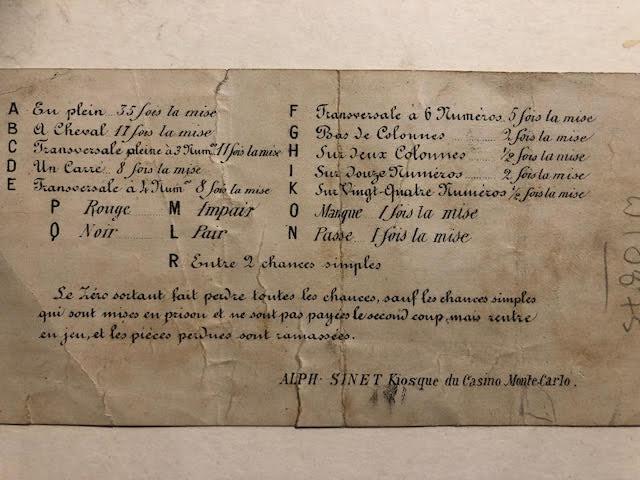 A En plein 35 fois la mise
B A Cheval 17 fois la mise
C Transversale pleine à 3 Num.os 11 fois la mise
D Un Carré 8 fois la mise
E Transversale à 4 Num.os 8 fois la mise
F Transversale à 6 Numéros 5 fois la mise
G Bas de Colonnes 2 fois la mise
H Sur deux Colonnes 1/2 fois la mise
I Sur Douze Numéros 2 fois la mise
K Sur Vingt-Quatre Numéros 1/2 fois la mise
P Rouge M Impair O Manque 1 fois la mise
Q Noir L Pair N Passe 1 fois la mise
R Entre 2 chances simples
Le Zéro sortant fait perdre toutes les chances, sauf les chances simples
qui sont mises en prison et ne sont pas payées le second coup, mais rentre
en jeu, et les pièces perdues sont ramassées.
ALPH. SINET Kiosque du Casino Monte-Carlo.